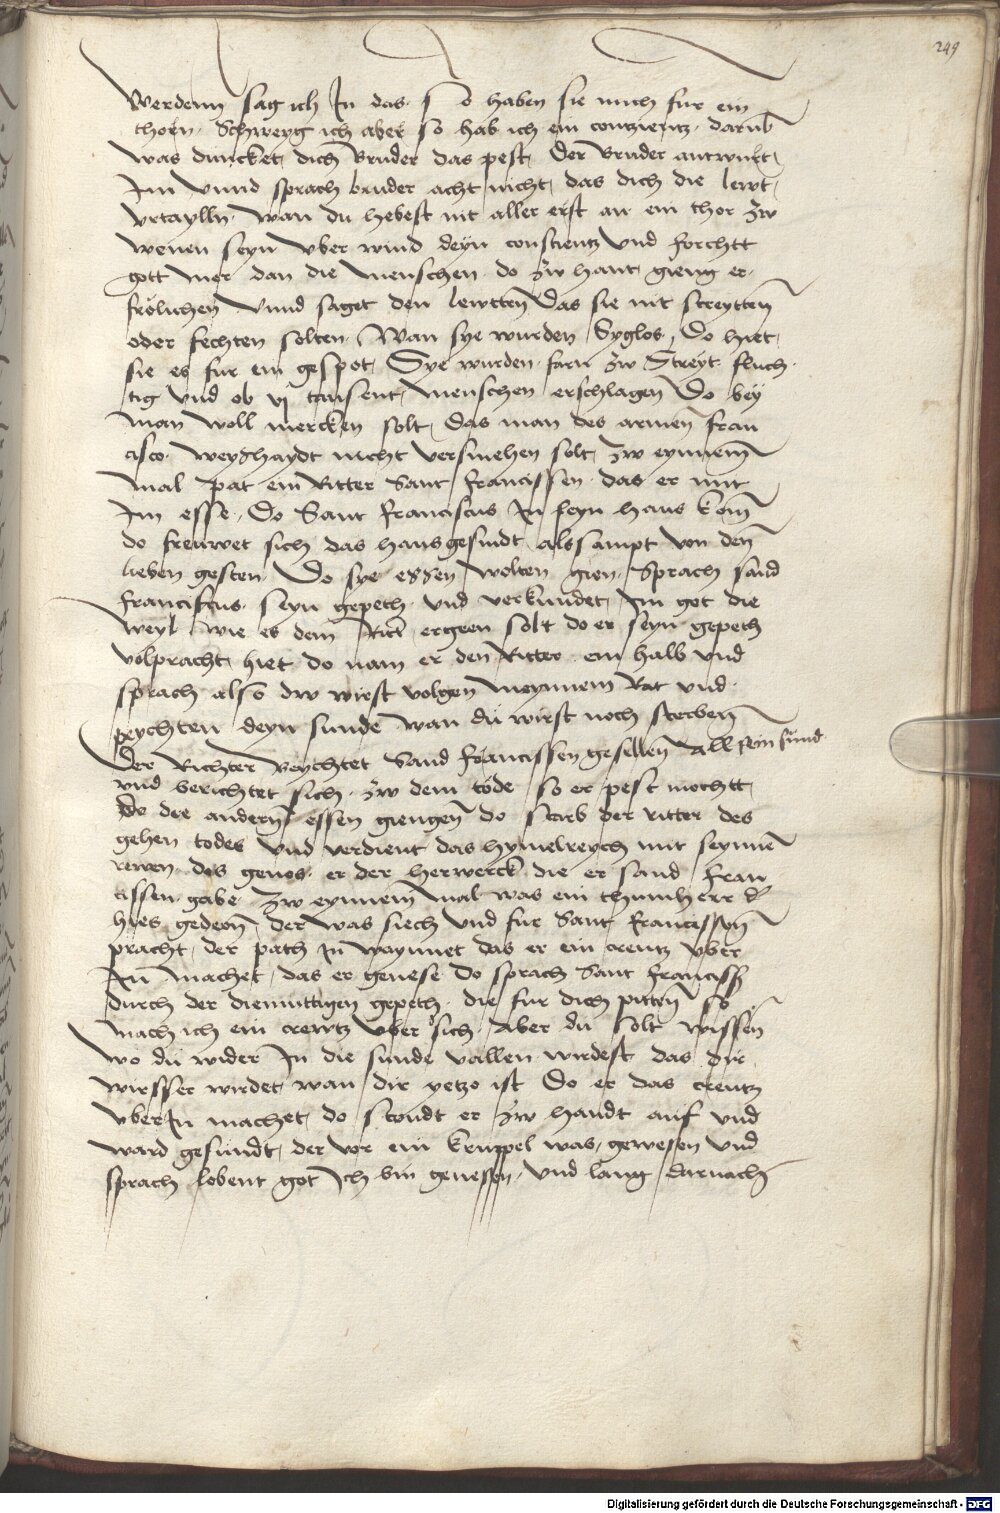 249
werdenn sag ich In das s o haben sie mich fur ein
thoren Schweyg ich aber so hab ich ein contzientz darub
was duncket dich Bruder das pest Der Bruder antwurt
Im vnnd sprach bruder acht nicht das dich die lewt
vrtaylln wan du hebest nit aller erst an ein thor zw
wenen seyn vber wind deyn conscientz vnd forchtt
gott mer dan die menschen do zw hant gieng er
frölichen vnnd saget den lewtten das sie nit streytten
oder fechten solten Wan sye wurden Syglos Do hiet
sie es fur ein gespot Sye wurden farn zw Streyt fluch
tig vnd ob vj tausent menschen erschlagen Do bey
man woll mercken solt das man des armen fran
cisco weyßhaydt nicht versmehen solt zw eynnem
mal pat ein Ritter Sant francissen das er mit
Im esse Do Sant franciscus In seyn haus kom
do frewet sich das hausgesindt alssampt von den
lieben gesten Do sye essen wolten gien Sprach sand
franciscus seyn gepeth vnd verkundet Im got die
weyl wie es dem Ritt ergeen solt do er seyn gepeth
volpracht hiet do nam er den Ritter ein halb vnd
sprach also dw wirst volgen meynnem Rat vnd
peychten deyn sunde wan du wirst noch sterben
Der Richter beychtet Sand francissen gesellen All sein sund
vnd berichtet sich zw dem tode so er pest mochtt
Do die andern essen giengen do starb der ritter des
gehen todes vnd verdient das hymelreych mit seynne
rewen des genos er der herwerck die er sand fran
cissen gabe zw eynnem mal was ein thumherr d
hies gedeon der was siech vnd fur Sant francissen
pracht der path In waynnet das er ein creutz vber
In machet das er genese Do sprach Sant franciss
durch der diemuttigen gepeth die fur dich pitten so
mach ich ein crewtz vber sich Aber du solt wissen
wo du wider In die sunde vallen wirdest das dir
wirsser wirdet wan dir yetzo ist Do er das creutz
vber In machet do stondt er zw handt auf vnd
ward gesundt der vor ein kruppel was gewesen vnd
sprach lobent got Ich bin genessen vnd lang darnach
Digitalisierung gefördert durch die Deutsche Forschungsgemeinschaft - DFG